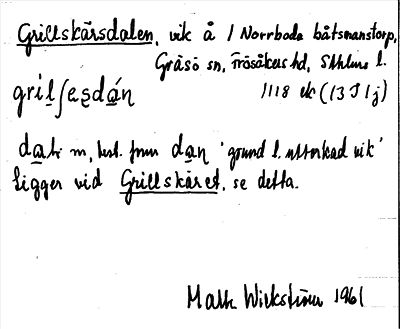 Grillskärsdalen, vik å 1 Norrboda båtsmanstorp,
Gräsö sn, Frösåkers hd, Sthlms l.
grilʃæsdán 1118 ek (13 I 1j)
m, best. form dan 'grund l. uttorkad vik'
Ligger vid Grillskäret, se detta.
Mats Wickström 1961